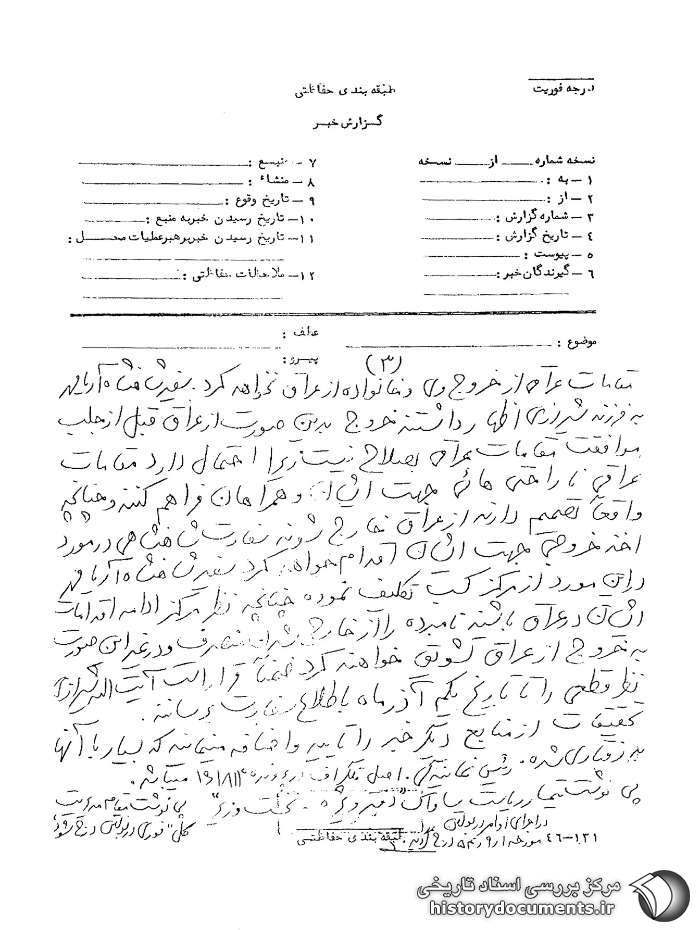 درجه فوریت
طبقه بندی حفاظتی
گزارش خبر
نسخه شماره ـــــ از ـــــ نسخه
۱ ـ به :
۲ ـ از :
۳ ـ شماره گزارش :
۴ ـ تاریخ گزارش :
۵ ـ پیوست :
۶ ـ گیرندگان خبر :
۷ ـ منبع :
۸ ـ منشاء :
۹ ـ تاریخ وقوع :
۱۰ ـ تاریخ رسیدن خبر به منبع :
۱۱ ـ تاریخ رسیدن خبر برهبر عملیات محل :
۱۲ ـ ملاحظات حفاظتی :
موضوع :
عطف :
پیرو :
(۳)
مقامات عراقی از خروج وی و خانواده از عراق نخواهد کرد. سفیر شاهنشاه آریامهر
به فرزند شیرازی اظهار داشتند خروج بدین صورت از عراق قبل از جلب
موافقت مقامات عراقی بصلاح نیست زیرا احتمال دارد مقامات
عراقی ناراحتی هائی جهت ایشان و همراهان فراهم کنند و چنانچه
واقعاً تصمیم دارند از عراق خارج شوند سفارت شاهنشاهی در مورد
اخذ خروجی جهت ایشان اقدام خواهد کرد سفیر شاهنشاه آریامهر
در این مورد از مرکز کسب تکلیف نموده چنانچه نظر مرکز ادامه اقامت
ایشان در عراق باشد نامبرده را از خارج شدن منصرف و در غیر این صورت
به خروج از عراق تشویق خواهند کرد ضمناً قرار است آیت الله شیرازی
نظر قطعی را تا تاریخ یکم آذر ماه باطلاع سفارت برسانند.
تحقیقات از منابع دیگر خبر را تایید و اضافه مینماید که بسیار با آنها
بد رفتاری شده. رئیس نمایندگی. اصل تلگراف در پرونده میباشد.
پی نوشت تیمسار ریاست ساواک
پی نوشت مقام مدیریت
در اجرای اوامر در بولتن
کل
درج شود
۱۲۱-۴۶ مورخه درج گردید.
طبقه بندی حفاظتی
مرکز بررسی اسناد تاریخی
historydocuments.ir